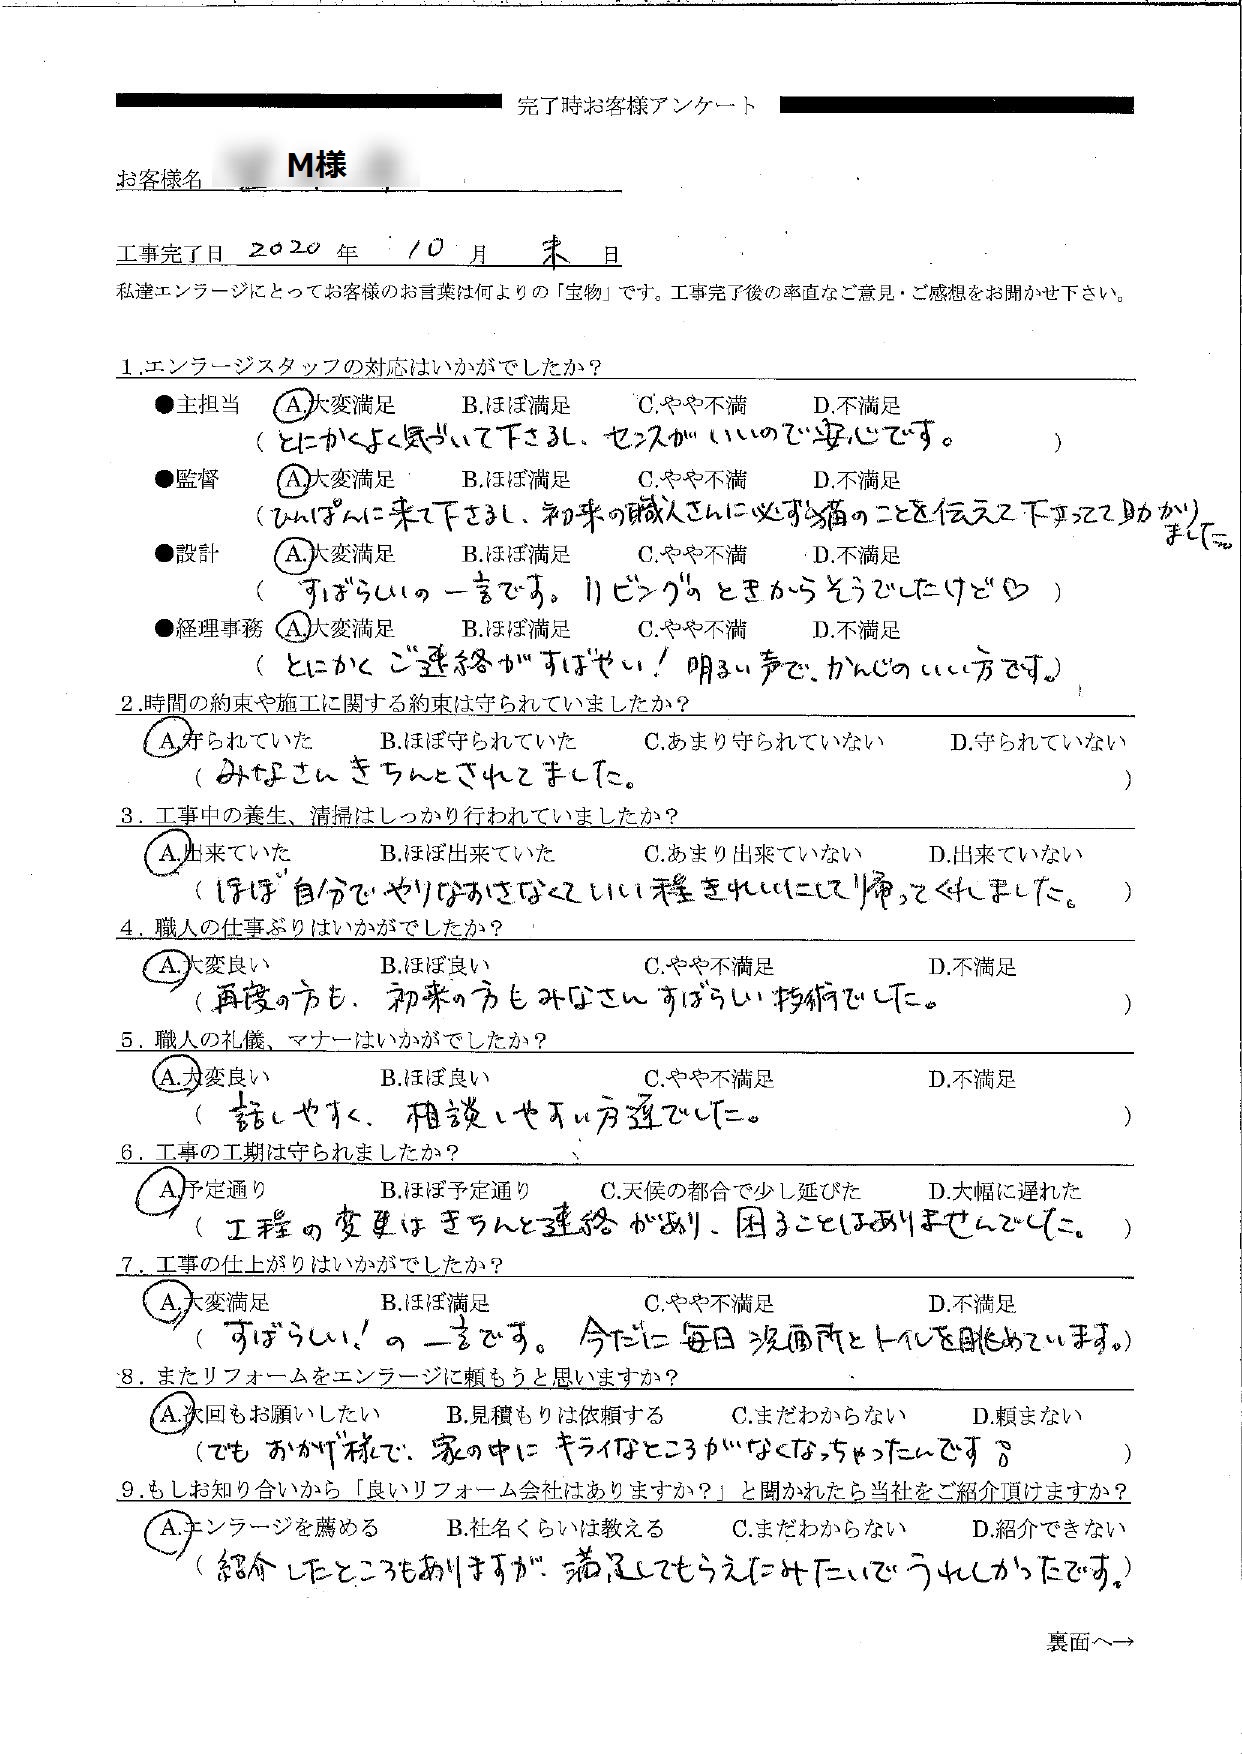 完了時お客様アンケート
お客様名 M様
工事完了日 2020 年 10 月 末 日
私達エンラージにとってお客様のお言葉は何よりの「宝物」です。工事完了後の率直なご意見・ご感想をお聞かせ下さい。
1.エンラージスタッフの対応はいかがでしたか？
●主担当 A.大変満足 B.ほぼ満足 C.やや不満 D.不満足
(とにかくよく気づいて下さるし、センスがいいので安心です。)
●監督 A.大変満足 B.ほぼ満足 C.やや不満 D.不満足
(ひんぱんに来て下さるし、初来の職人さんに必ず猫のことを伝えて下さってて助かり
ました。
●設計 A.大変満足 B.ほぼ満足 C.やや不満 D.不満足
(すばらしいの一言です。リビングのときからそうでしたけど♡)
●経理事務 A.大変満足 B.ほぼ満足 C.やや不満 D.不満足
(とにかくご連絡がすばやい！明るい声で、かんじのいい方です。)
2.時間の約束や施工に関する約束は守られていましたか？
A.守られていた B.ほぼ守られていた C.あまり守られていない D.守られていない
(みなさんきちんとされてました。)
3. 工事中の養生、清掃はしっかり行われていましたか？
A.出来ていた B.ほぼ出来ていた C.あまり出来ていない D.出来ていない
(ほぼ自分でやりなおさなくていい程きれいにして帰ってくれました。)
4. 職人の仕事ぶりはいかがでしたか？
A.大変良い B.ほぼ良い C.やや不満足 D.不満足
(再度の方も、初来の方もみなさんすばらしい技術でした。)
5. 職人の礼儀、マナーはいかがでしたか？
A.大変良い B.ほぼ良い C.やや不満足 D.不満足
(話しやすく、相談しやすい方達でした。)
6. 工事の工期は守られましたか？
A.予定通り B.ほぼ予定通り C.天候の都合で少し延びた D.大幅に遅れた
(工程の変更はきちんと連絡があり、困ることはありませんでした。)
7. 工事の仕上がりはいかがでしたか？
A.大変満足 B.ほぼ満足 C.やや不満足 D.不満足
(すばらしい！の一言です。今だに毎日洗面所とトイレを眺めています。)
8. またリフォームをエンラージに頼もうと思いますか？
A.次回もお願いしたい B.見積もりは依頼する C.まだわからない D.頼まない
(でもおかげ様で、家の中にキライなところがなくなっちゃったんです)
9.もしお知り合いから「良いリフォーム会社はありますか？」と聞かれたら当社をご紹介頂けますか？
A.エンラージを薦める B.社名くらいは教える C.まだわからない D.紹介できない
(紹介したところもありますが、満足してもらえたみたいでうれしかったです。)
裏面へ→